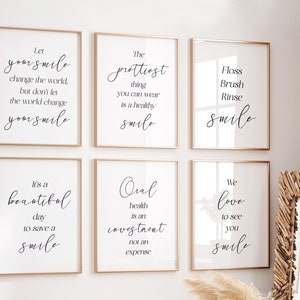 Let
your smile
change the world,
but don't let
the world change
your smile
The
prettiest
thing
you can wear
is a healthy
smile
Floss
Brush
Rinse
smile
It's a
beautiful
day
to save a
smile
Oral
health
is an
investment
not an
expense
We
love
to see
you
smile